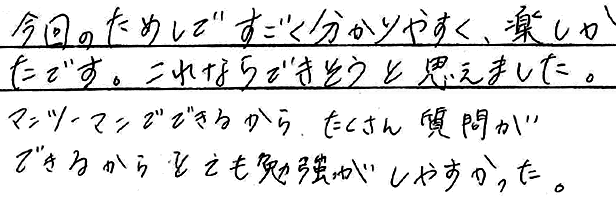 今回のためしですごく分かりやすく、楽しか
たです。これならできそうと思えました。
マンツーマンでできるから、たくさん質問が
できるからとても勉強がしやすかった。